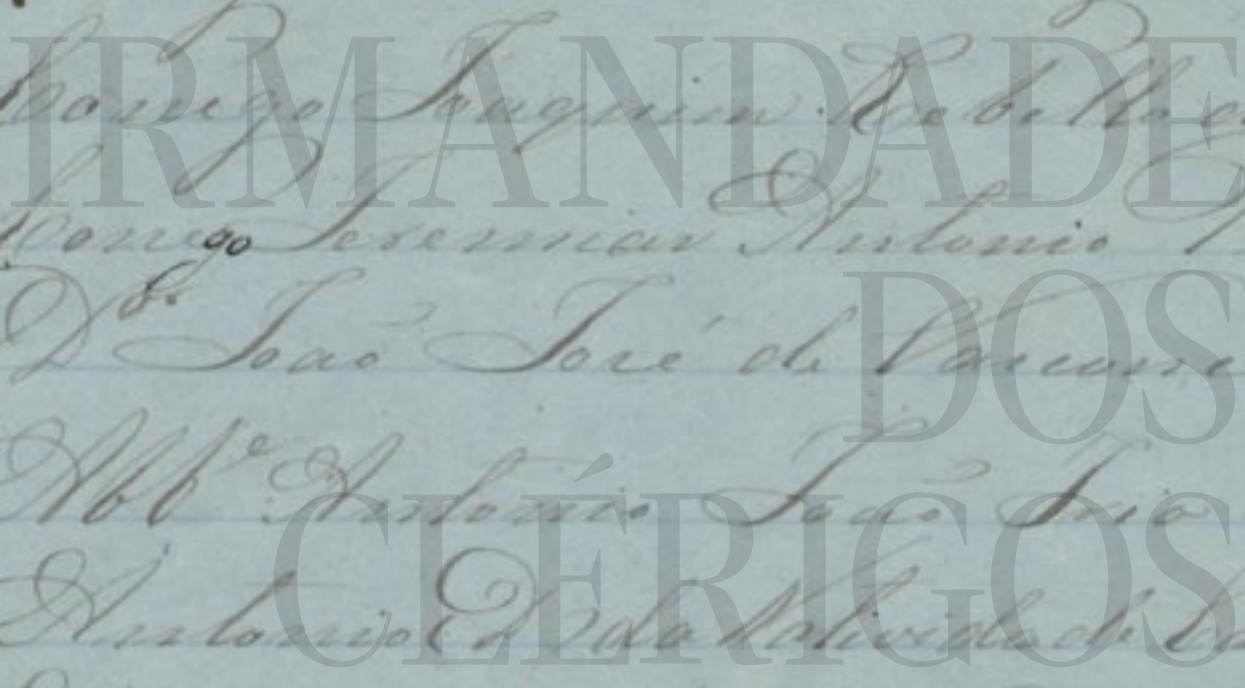 IRMANDADE
DOS
CLÉRIGOS
Conego Joaquim Rebello
Conego Jeremias Antonio
Dr João José de Vasconce
Abbe Antonio João
Antonio da Natividade de